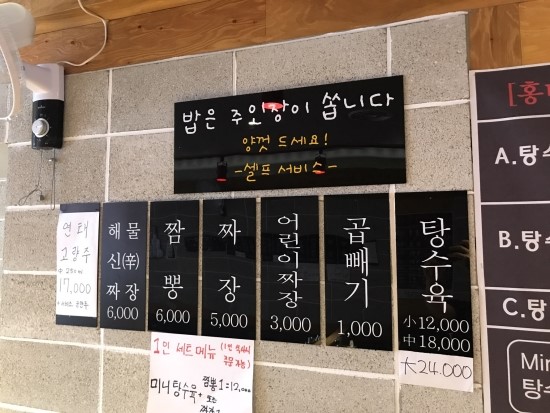 밥은 주인장이 쏩니다
양껏 드세요!
-셀프 서비스-
연태
고량주
中
17,000
해물
신(辛)
짜장
6,000
짬
뽕
6,000
짜
장
5,000
어린이짜장
3,000
곱빼기
1,000
탕수육
小 12,000
中 18,000
大 24,000
1인 세트메뉴
미니탕수육+
짬뽕 1=12,000
또는
[홍
A.탕수
B.탕
C.탕
Min
탕수